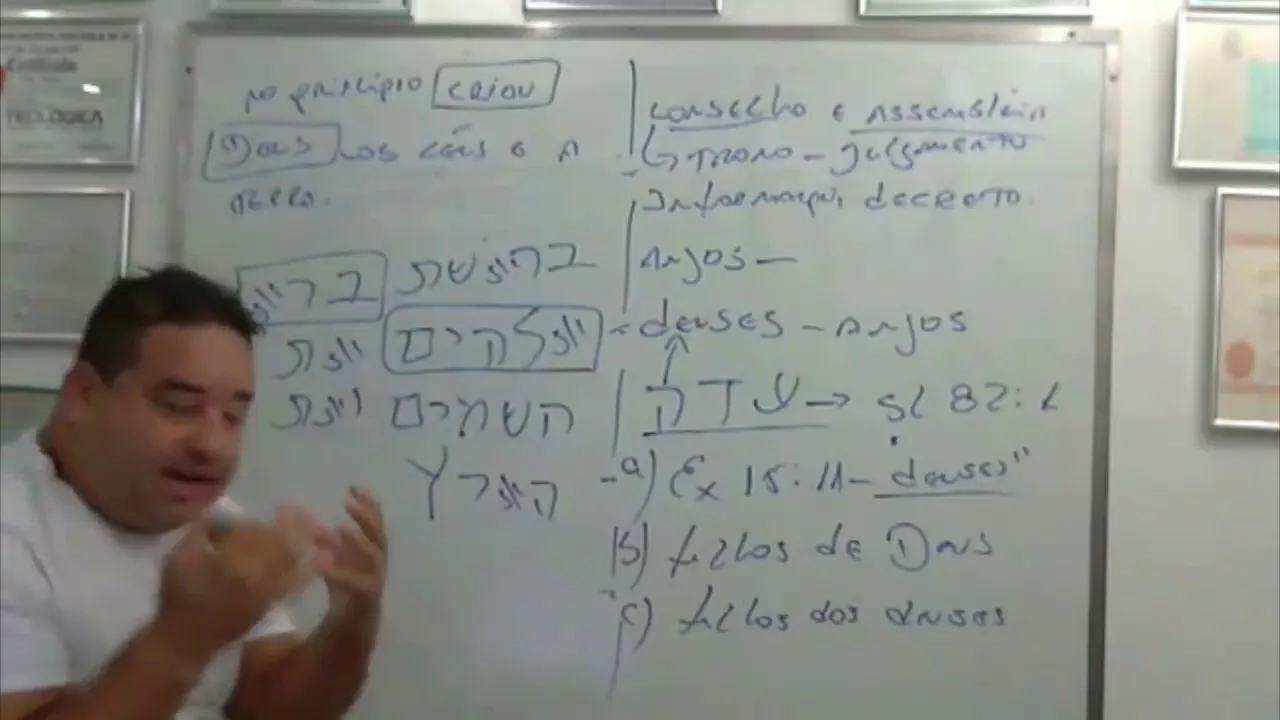 no princípio criou
Deus os céus e a
terra.
בראשת ברא
אלהים את
השמים ואת
הארץ
Conselho e Assembléia
↳ Trono - julgamento
Informação, decreto.
Anjos -
- deuses - Anjos
עדה → Sl 82:1
a) Ex 15:11 - deuses"
b) filhos de Deus
c) filhos dos deuses
TEOLÓGICA